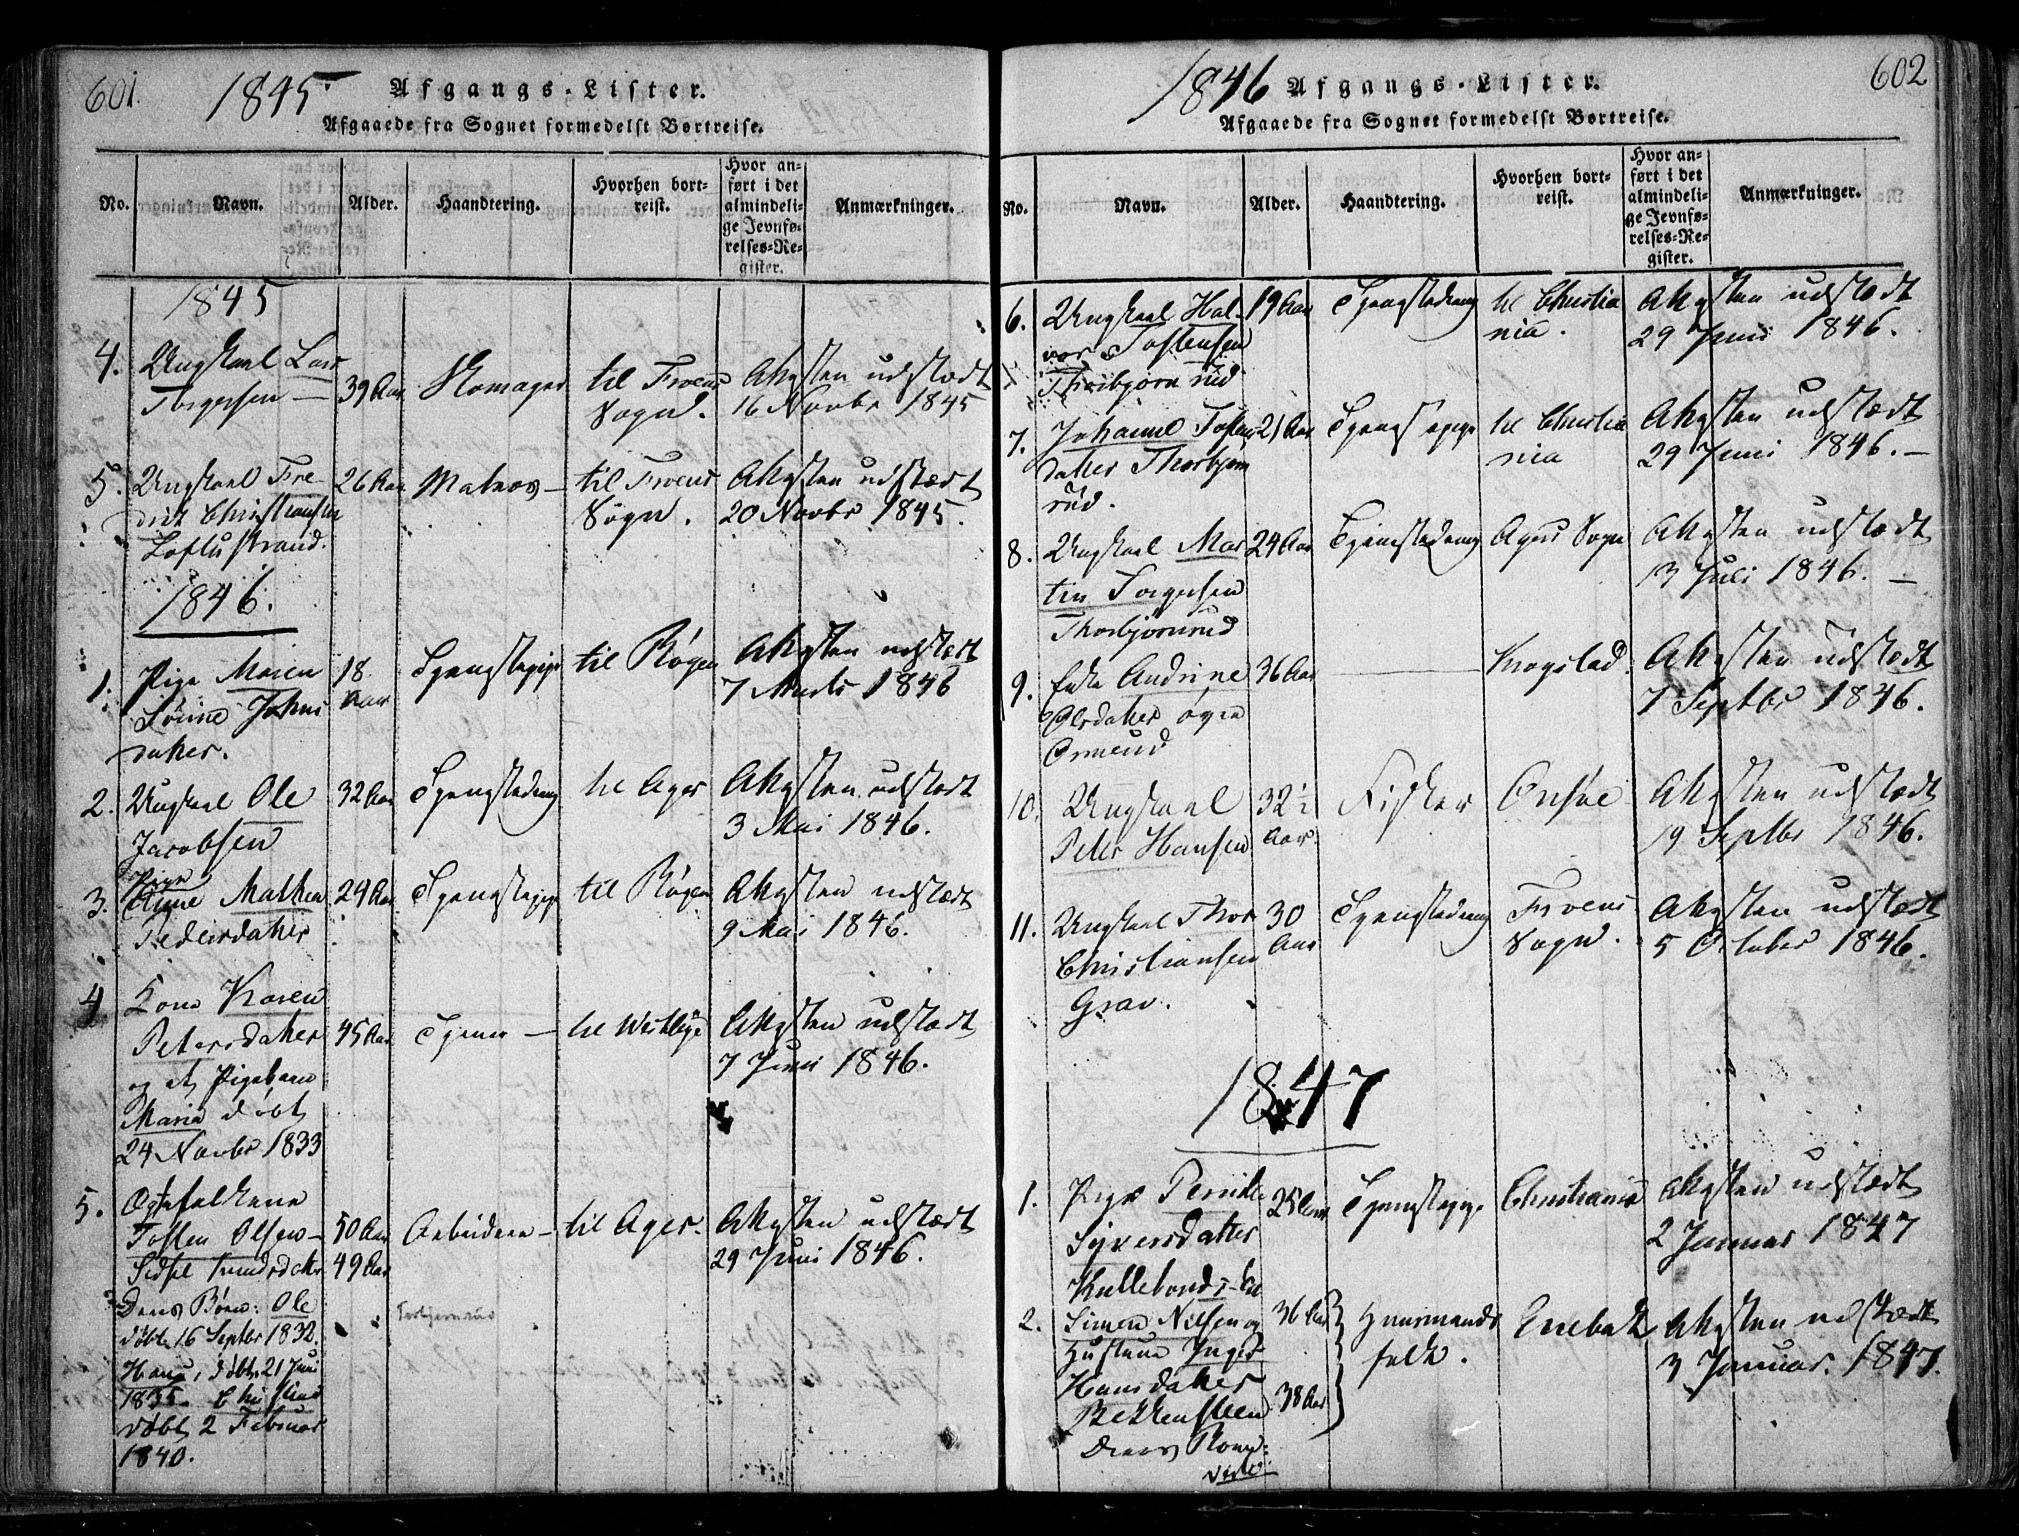 601.
1845
Afgangs-Lister.
Afgaaede fra Sognet formedelst Bortreise.
No.
Navn.
Alder.
Haandtering.
Hvorhen bort-
reist.
Hvor an-
ført i det
almindeli-
ge Jevnfø-
relses-Re-
gister.
Anmærkninger.
1845
4. Ungkarl Lars
Torgersen — 39 Aar
til Froens
Sogn.
Attesten udstædt
16 Novbr 1845
5. Ungkarl Fre-
drik Christiansen
26 Aar Matros —
til Froens
Sogn.
Attesten udstædt
20 Novbr 1845.
1846.
1. Pige Maren
18 Aar
Tjenestepige til Røgen
Attesten udstædt
7 Marts 1846
2. Ungkarl Ole
Jacobsen
32 Aar Tjenestedreng til Ager
Attesten udstædt
3 Mai 1846.
3. Pige
Anne Mathea
Pedersdatter
24 Aar Tjenestepige til Røgen
Attesten udstædt
9 Mai 1846.
4 Kone Karen
Petersdatter
og et Pigebarn
Maria døbt
24 Novbr 1833
45 Aar
Attesten udstædt
7 Juni 1846.
5. Ægtefolkene
Tosten Olsen —
50 Aar
49 Aar
til Ager.
Attesten udstædt
29 Juni 1846.
Deres Børn: Ole
døbt 16 Septbr 1832
Hans, døbt 21 Juni
1835
døbt 2 Februar
1840.
1846
Afgangs-Lister.
602
Afgaaede fra Sognet formedelst Bortreise.
No.
Navn.
Alder.
Haandtering.
Hvorhen bort-
reist.
Hvor an-
ført i det
almindeli-
ge Jevnfø-
relses-Re-
gister.
Anmærkninger.
6. Ungkarl Hal-
vor Tostensen
Thorbjørnrud
19 Aar Tjenestedreng
til Christia
nia.
Attesten udstædt
29 Juni 1846.
7. Johanne Tostens
datter Thorbjørn
rud.
21 Aar Tjenestepige
til Christia
nia
Attesten udstædt
29 Juni 1846. —
8. Ungkarl Mar
tin Torgersen
Thorbjørnrud
24 Aar Tjenestedreng
Agers Sogn
Attesten udstædt
13 Juli 1846. —
9. Enke Andrine
Olsdatter
36 Aar
Krogstad.
Attesten udstædt
7 Septbr 1846.
10. Ungkarl
Peter Hansen
32½
Aar.
Fisker
Onsøe
Attesten udstædt
19 Septbr 1846.
11. Ungkarl Thor
Christiansen
Grav.
30
Aar
Tjenestedreng
Froens
Sogn.
Attesten udstædt
5 October 1846.
1847
1. Pige
Syversdatter
25 Aar
Tjenestepige
Christiania
Attesten udstædt
2 Januar 1847
2. Simen Nilsen og
Hustrue Inger
Hansdatter
36 Aar
38 Aar
Huusmands
folk.
Enebak
Attesten udstædt
3 Januar. 1847.